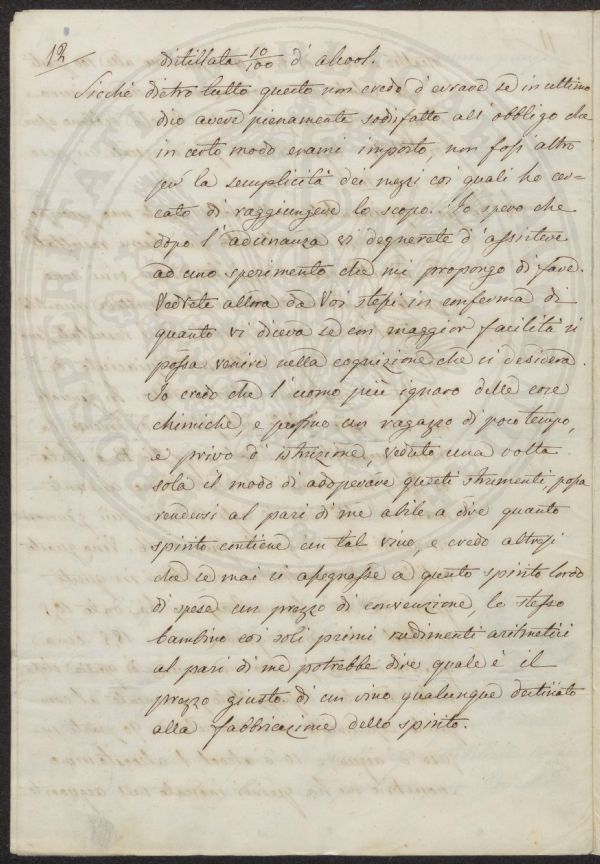 12
distillata 10/100 d'alcool.
Sicchè dietro tutto questo non credo d'errare se in ultimo
dico avere pienamente sodisfatto all'obbligo che
in certo modo erami imposto, non foss'altro
per la semplicità dei mezzi coi quali ho cer-
cato di raggiungere lo scopo. Io spero che
dopo l'adunanza vi degnerete d'assistere
ad uno sperimento che mi propongo di fare.
Vedrete allora da Voi stessi in conferma di
quanto vi diceva se con maggior facilità si
possa venire nella cognizione che si desidera.
Io credo che l'uomo più ignaro delle cose
chimiche, e persino un ragazzo di poco tempo,
e privo d'istruzione, veduto una volta
sola il modo di adoperare questi strumenti, possa
rendersi al pari di me abile a dire quanto
spirito contiene un tal vino, e credo altresì
che se mai si assegnasse a questo spirito lordo
di spese un prezzo di convenzione lo stesso
bambino coi soli primi rudimenti aritmetici
al pari di me potrebbe dire quale è il
prezzo giusto di un vino qualunque destinato
alla fabbricazione dello spirito.